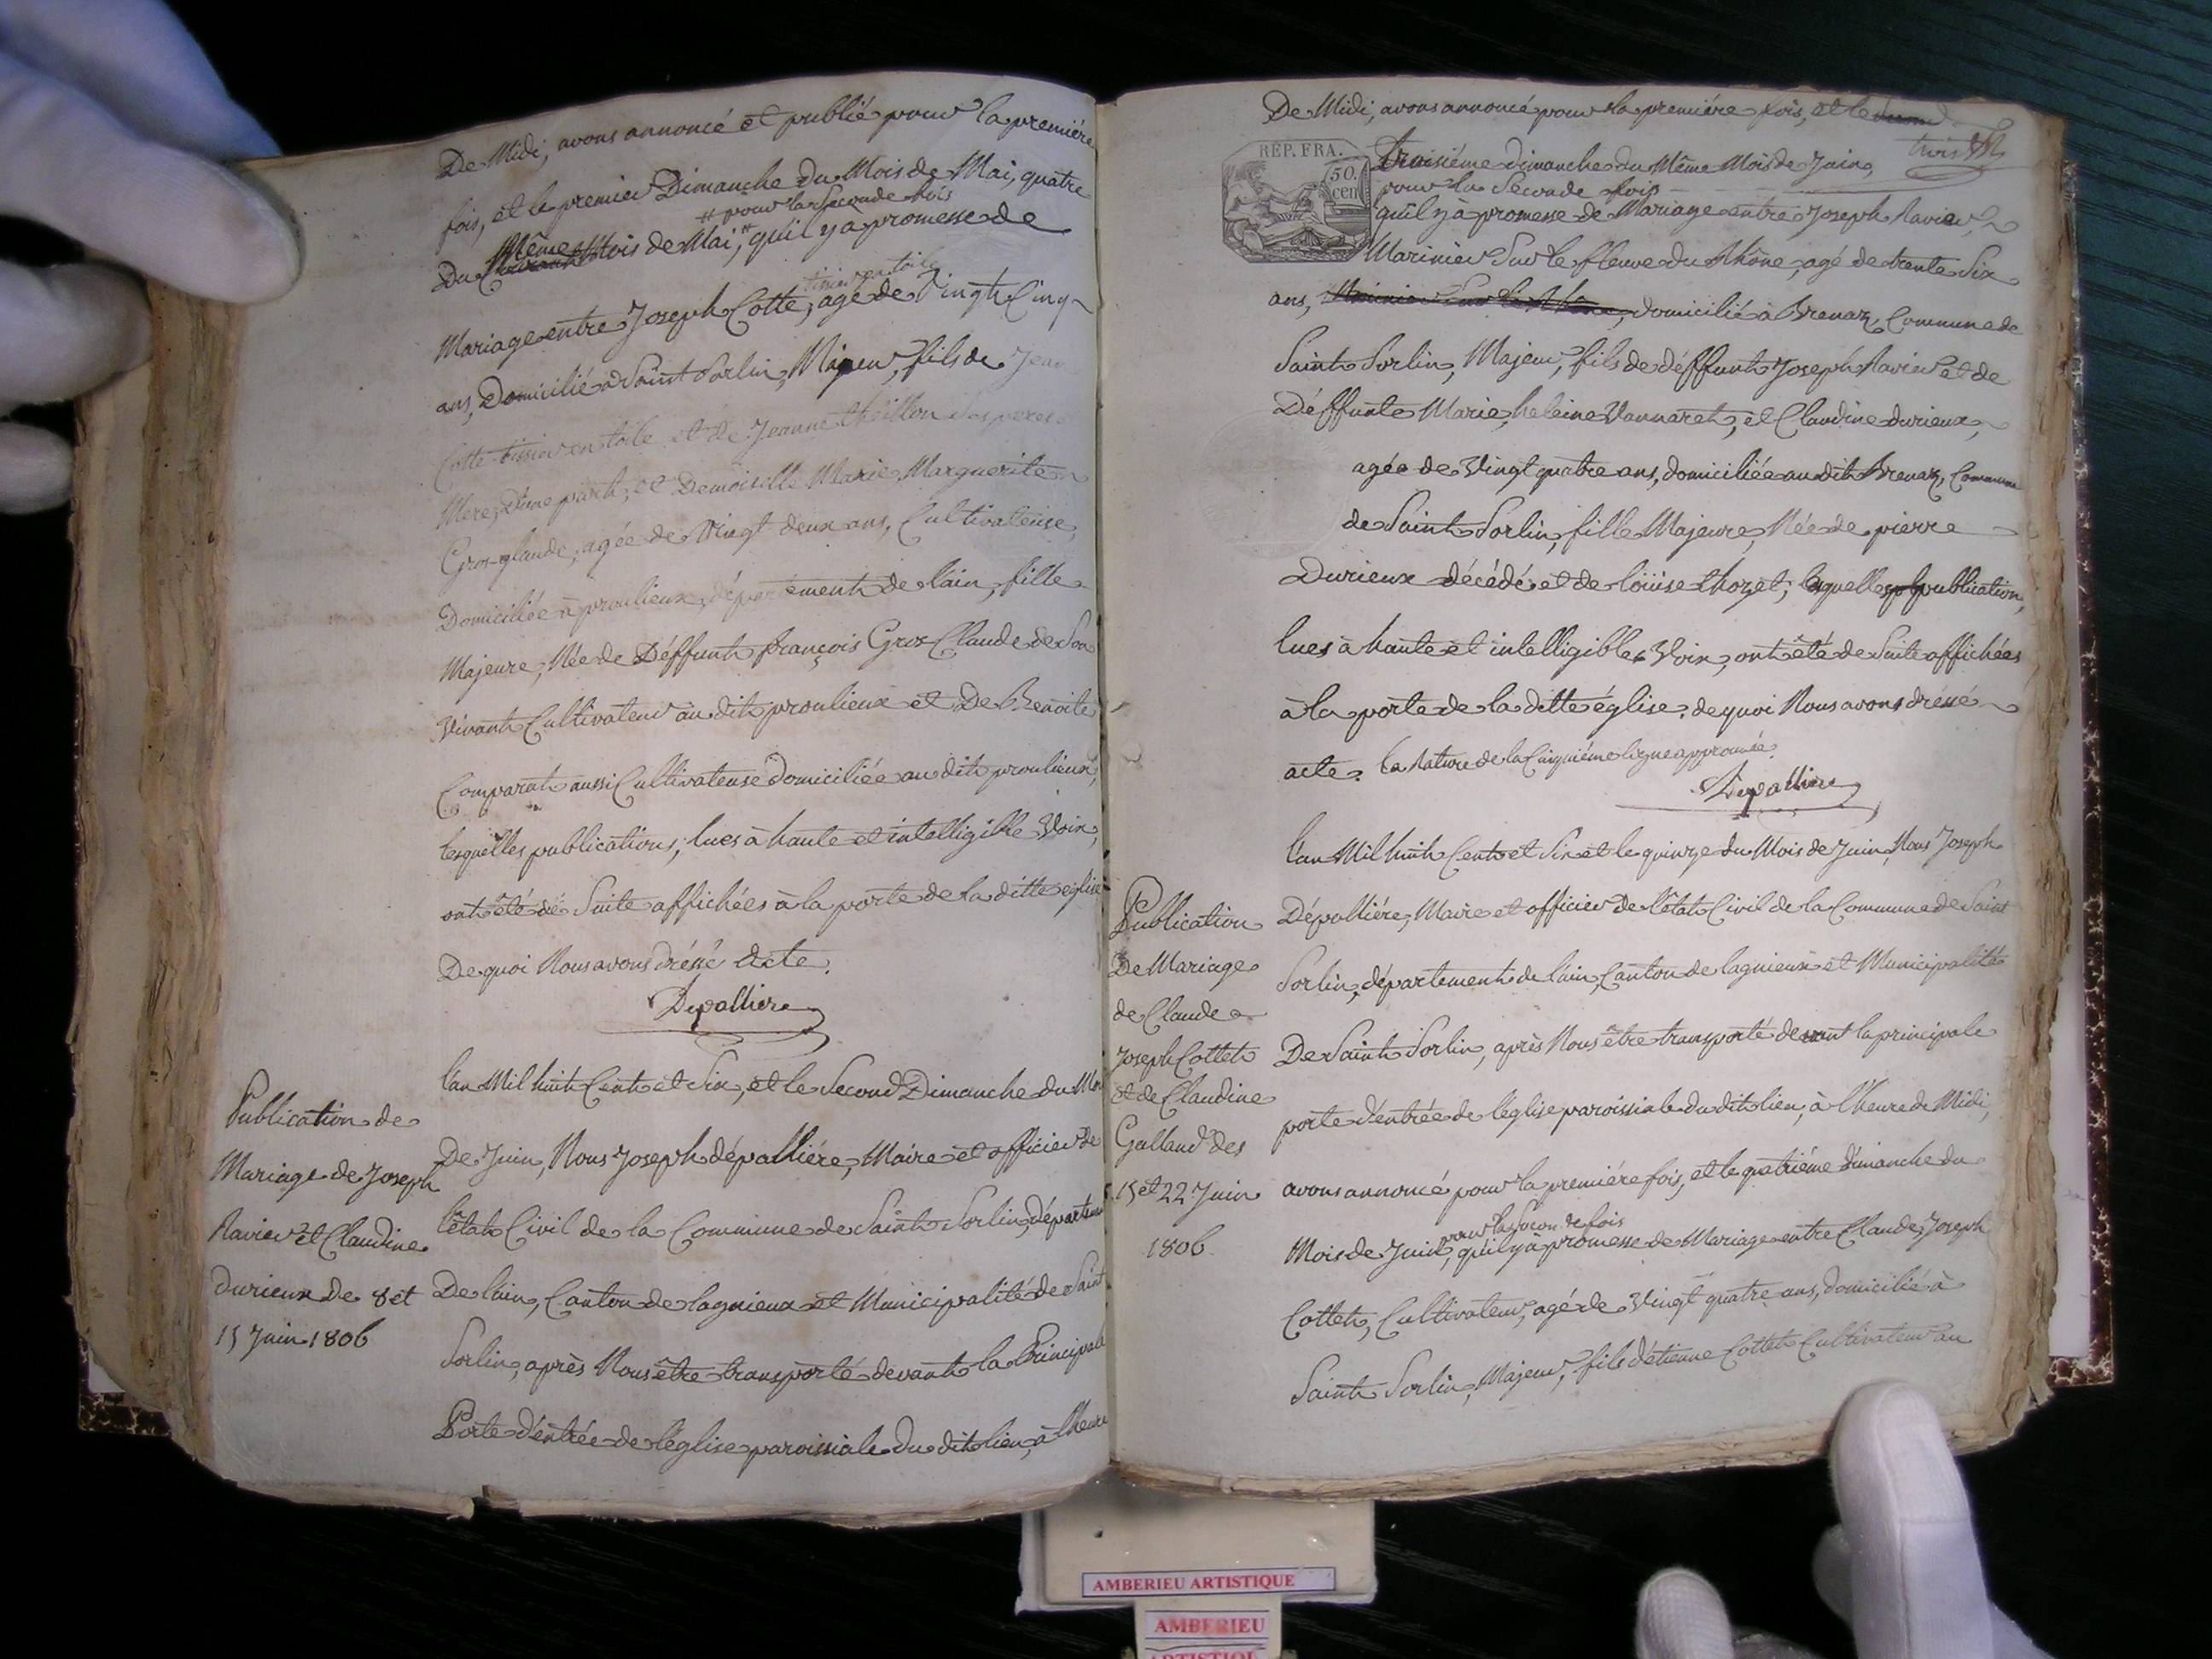 De Midi, avons annoncé et publié pour la premiére
fois, et le premier Dimanche du Mois de Mai, quatre
# pour la Seconde fois
Du Même Mois de Mai,# qu'il y à promesse de
tissier en toile
Mariage entre Joseph Cotte, agé de Vingt Cinq
ans, Domicilié à Saint Sorlin, Majeur, fils de Jean
Cotte tissier en toile et de Jeanne thillon Ses pere et
Mere, d'une part; et Demoiselle Marie Marguerite
Gros-glaude, agée de Vingt deux ans, Cultivateuse,
Domiciliée à proulieux, département de l'ain, fille
Majeure, Née de Déffunt françois Gros Claude de Son
Vivant Cultivateur au dit proulieux et De Benoite
Comparat aussi Cultivateuse Domiciliée au dit proulieux,
lesquelles publications, lues à haute et intelligible Voix,
ont été de Suite affichées à la porte de la ditte église
De quoi Nous avons dréssé Acte.
Depalliere
Publication de
Mariage de Joseph
Ravier et Claudine
Durieux De 8 et
15 Juin 1806
l'an Mil huit Cent et Six, et le Second Dimanche du Mois
De Juin, Nous Joseph dépalliére, Maire et officier de
l'état Civil de la Commune de Saint Sorlin, département
De l'ain, Canton de lagnieux et Municipalité de Saint
Sorlin, après Nous être transporté devant la Principale
Porte d'entrée de l'église paroissiale du dit lieu, à l'heure
De Midi, avons annoncé pour la premiére fois, et le
RÉP. FRA.
50.
cen
trois
troisiéme dimanche du Même Mois de Juin,
pour la Seconde fois
qu'il y à promesse de Mariage entre Joseph Ravier,
Marinier Sur le fleuve du Rhône, agé de trente Six
ans, Marinier Sur le Rhône, domicilié à Brenaz, Commune de
Saint Sorlin, Majeur, fils de déffunt Joseph Ravier et de
Déffunte Marie heleine Vannaret, et Claudine durieux,
agée de Vingt quatre ans, domiciliée au dit Brenaz, Commune
de Saint Sorlin, fille Majeure, Née de pierre
Durieux décédé et de loüise thozet; lesquelles publication,
lues à haute et intelligible Voix, ont été de Suite affichées
à la porte de la ditte église. de quoi Nous avons dréssé
acte. la Rature de la Cinquiéme ligne approuvée.
Depalliere
Publication
De Mariage
de Claude
Joseph Cottet
et de Claudine
Galland des
15 et 22 Juin
1806.
l'an Mil huit Cent et Six et le quinze du Mois de Juin, Nous Joseph
Dépalliére, Maire et officier De l'état Civil de la Commune de Saint
Sorlin, département de l'ain, Canton de lagnieux et Municipalité
De Saint Sorlin, après Nous être transporté devant la principale
porte d'entrée de l'église paroissiale du dit lieu, à l'heure de Midi,
avons annoncé pour la premiére fois, et le quatriéme dimanche du
pour la Seconde fois
Mois de Juin, qu'il y à promesse de Mariage entre Claude Joseph
Cottet, Cultivateur, agé de Vingt quatre ans, domicilié à
Saint Sorlin, Majeur, fils d'étienne Cottet Cultivateur au
AMBERIEU ARTISTIQUE
AMBERIEU
ARTISTIQUE